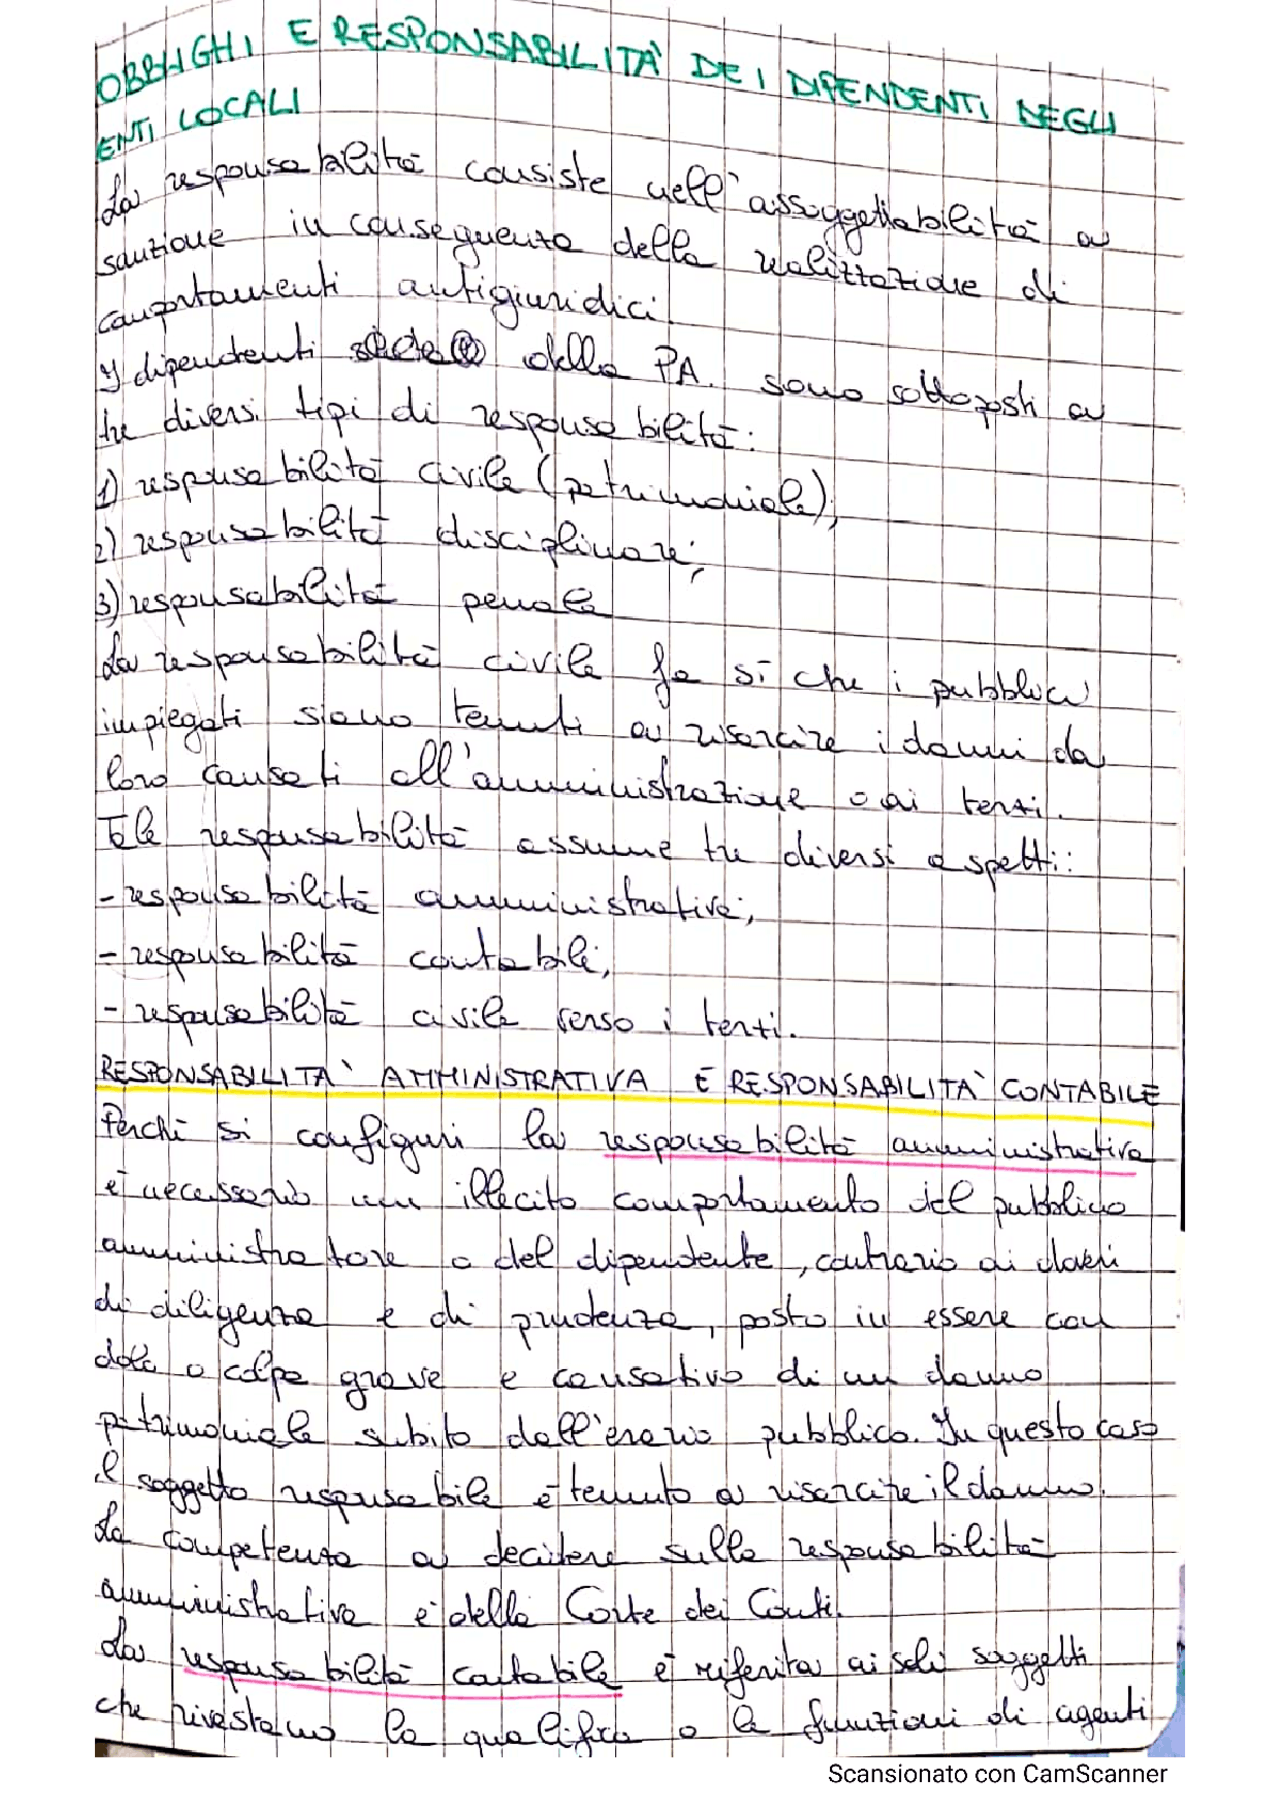 OBBLIGHI E RESPONSABILITÀ DEI DIPENDENTI DEGLI
ENTI LOCALI
La responsabilità consiste nell'assoggettabilità a
sanzione in conseguenza della realizzazione di
comportamenti antigiuridici.
I dipendenti della PA. sono sottoposti a
tre diversi tipi di responsabilità:
1) responsabilità civile (patrimoniale);
2) responsabilità disciplinare;
3) responsabilità penale
La responsabilità civile fa sì che i pubblici
impiegati siano tenuti a risarcire i danni da
loro causati all'amministrazione o ai terzi.
Tale responsabilità assume tre diversi aspetti:
- responsabilità amministrativa;
- responsabilità contabile;
- responsabilità civile verso i terzi.
RESPONSABILITA' AMMINISTRATIVA E RESPONSABILITA' CONTABILE
Perché si configuri la responsabilità amministrativa
è necessario un illecito comportamento del pubblico
amministratore o del dipendente, contrario ai doveri
di diligenza e di prudenza, posto in essere con
dolo o colpa grave e causativo di un danno
patrimoniale subito dall'erario pubblico. In questo caso
il soggetto responsabile è tenuto a risarcire il danno.
La competenza a decidere sulla responsabilità
amministrativa è della Corte dei Conti.
La responsabilità contabile è riferita ai soli soggetti
che rivestano la qualifica o le funzioni di agenti
Scansionato con CamScanner